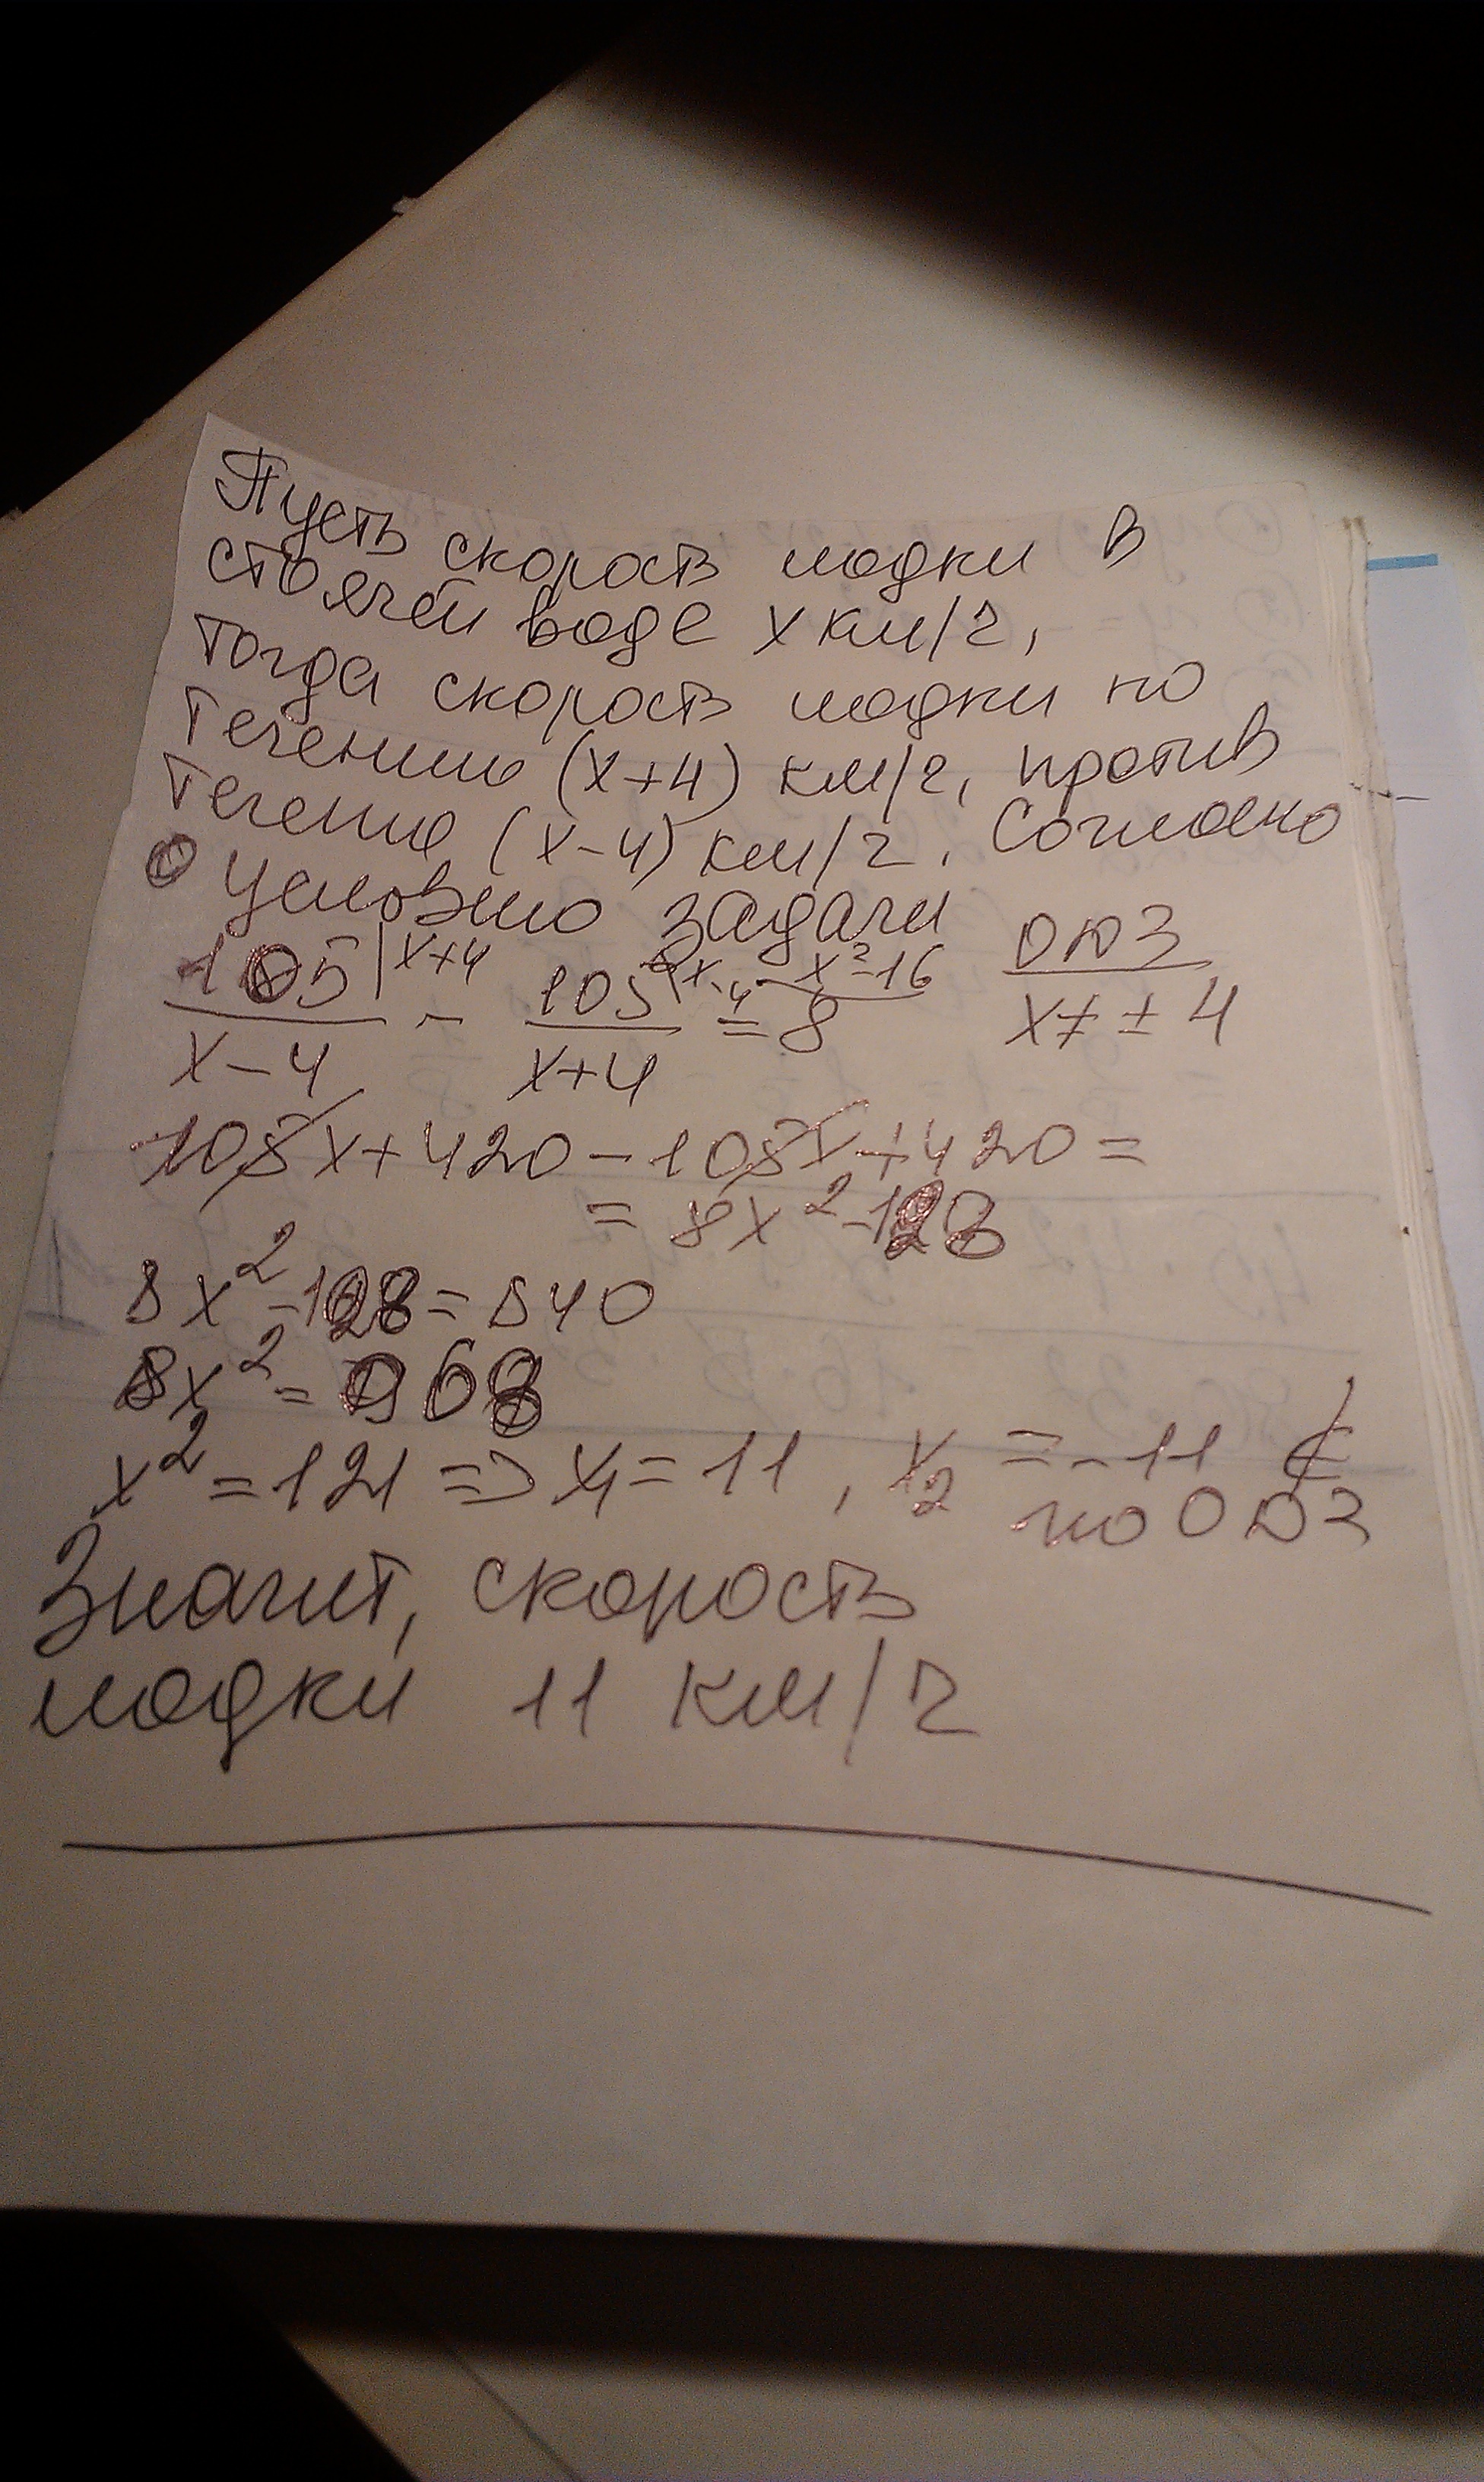 Пусть скорость лодки в
стоячей воде x км/ч,
тогда скорость лодки по
течению (x+4) км/ч, против
течения (x-4) км/ч. Согласно
условию задачи
105 |x+4 / x-4 - 105 |x-4 / x+4 = 8 |x²-16 ОДЗ x ≠ ± 4
105x + 420 - 105x + 420 =
= 8x² - 128
8x² - 128 = 840
8x² = 968
x² = 121 => x₁ = 11, x₂ = -11 ∉
по ОДЗ
Значит, скорость
лодки 11 км/ч